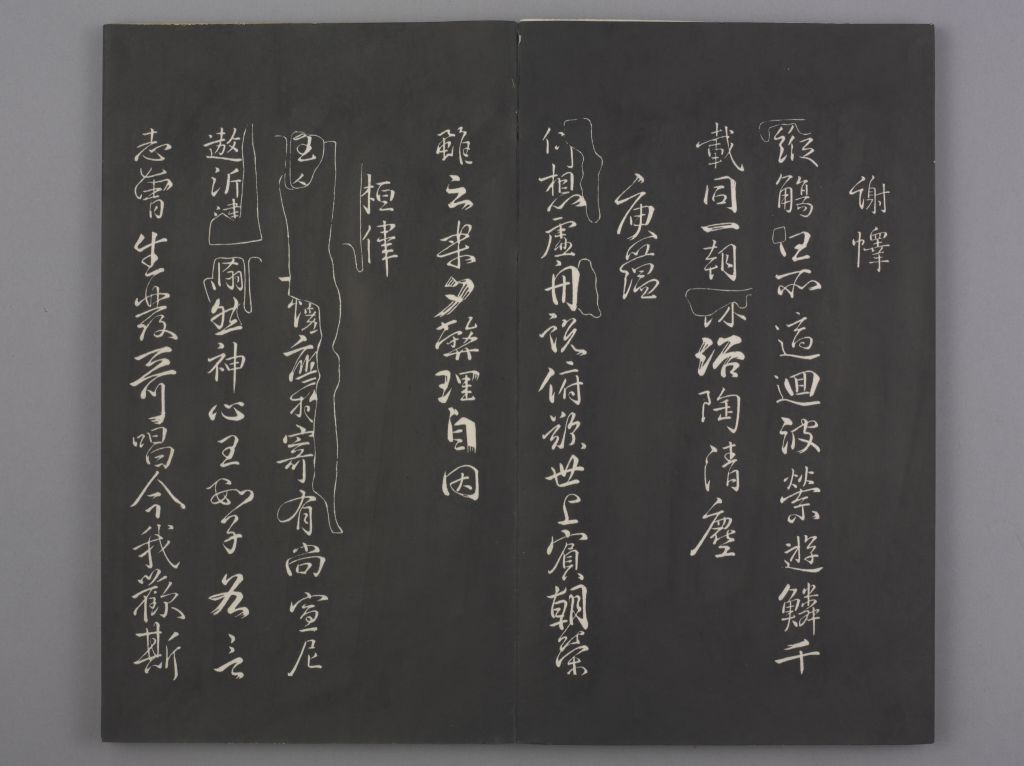 謝懌
縱觴任所適迴波縈遊鱗千
載同一朝沐浴陶清塵
庾蘊
仰想虛舟説俯歎世上賓朝榮
雖云樂夕弊理自因
桓偉
主人懷應物寄有尚宣尼
遨沂津蕭然神心王數子各言
志曾生發奇唱今我歡斯